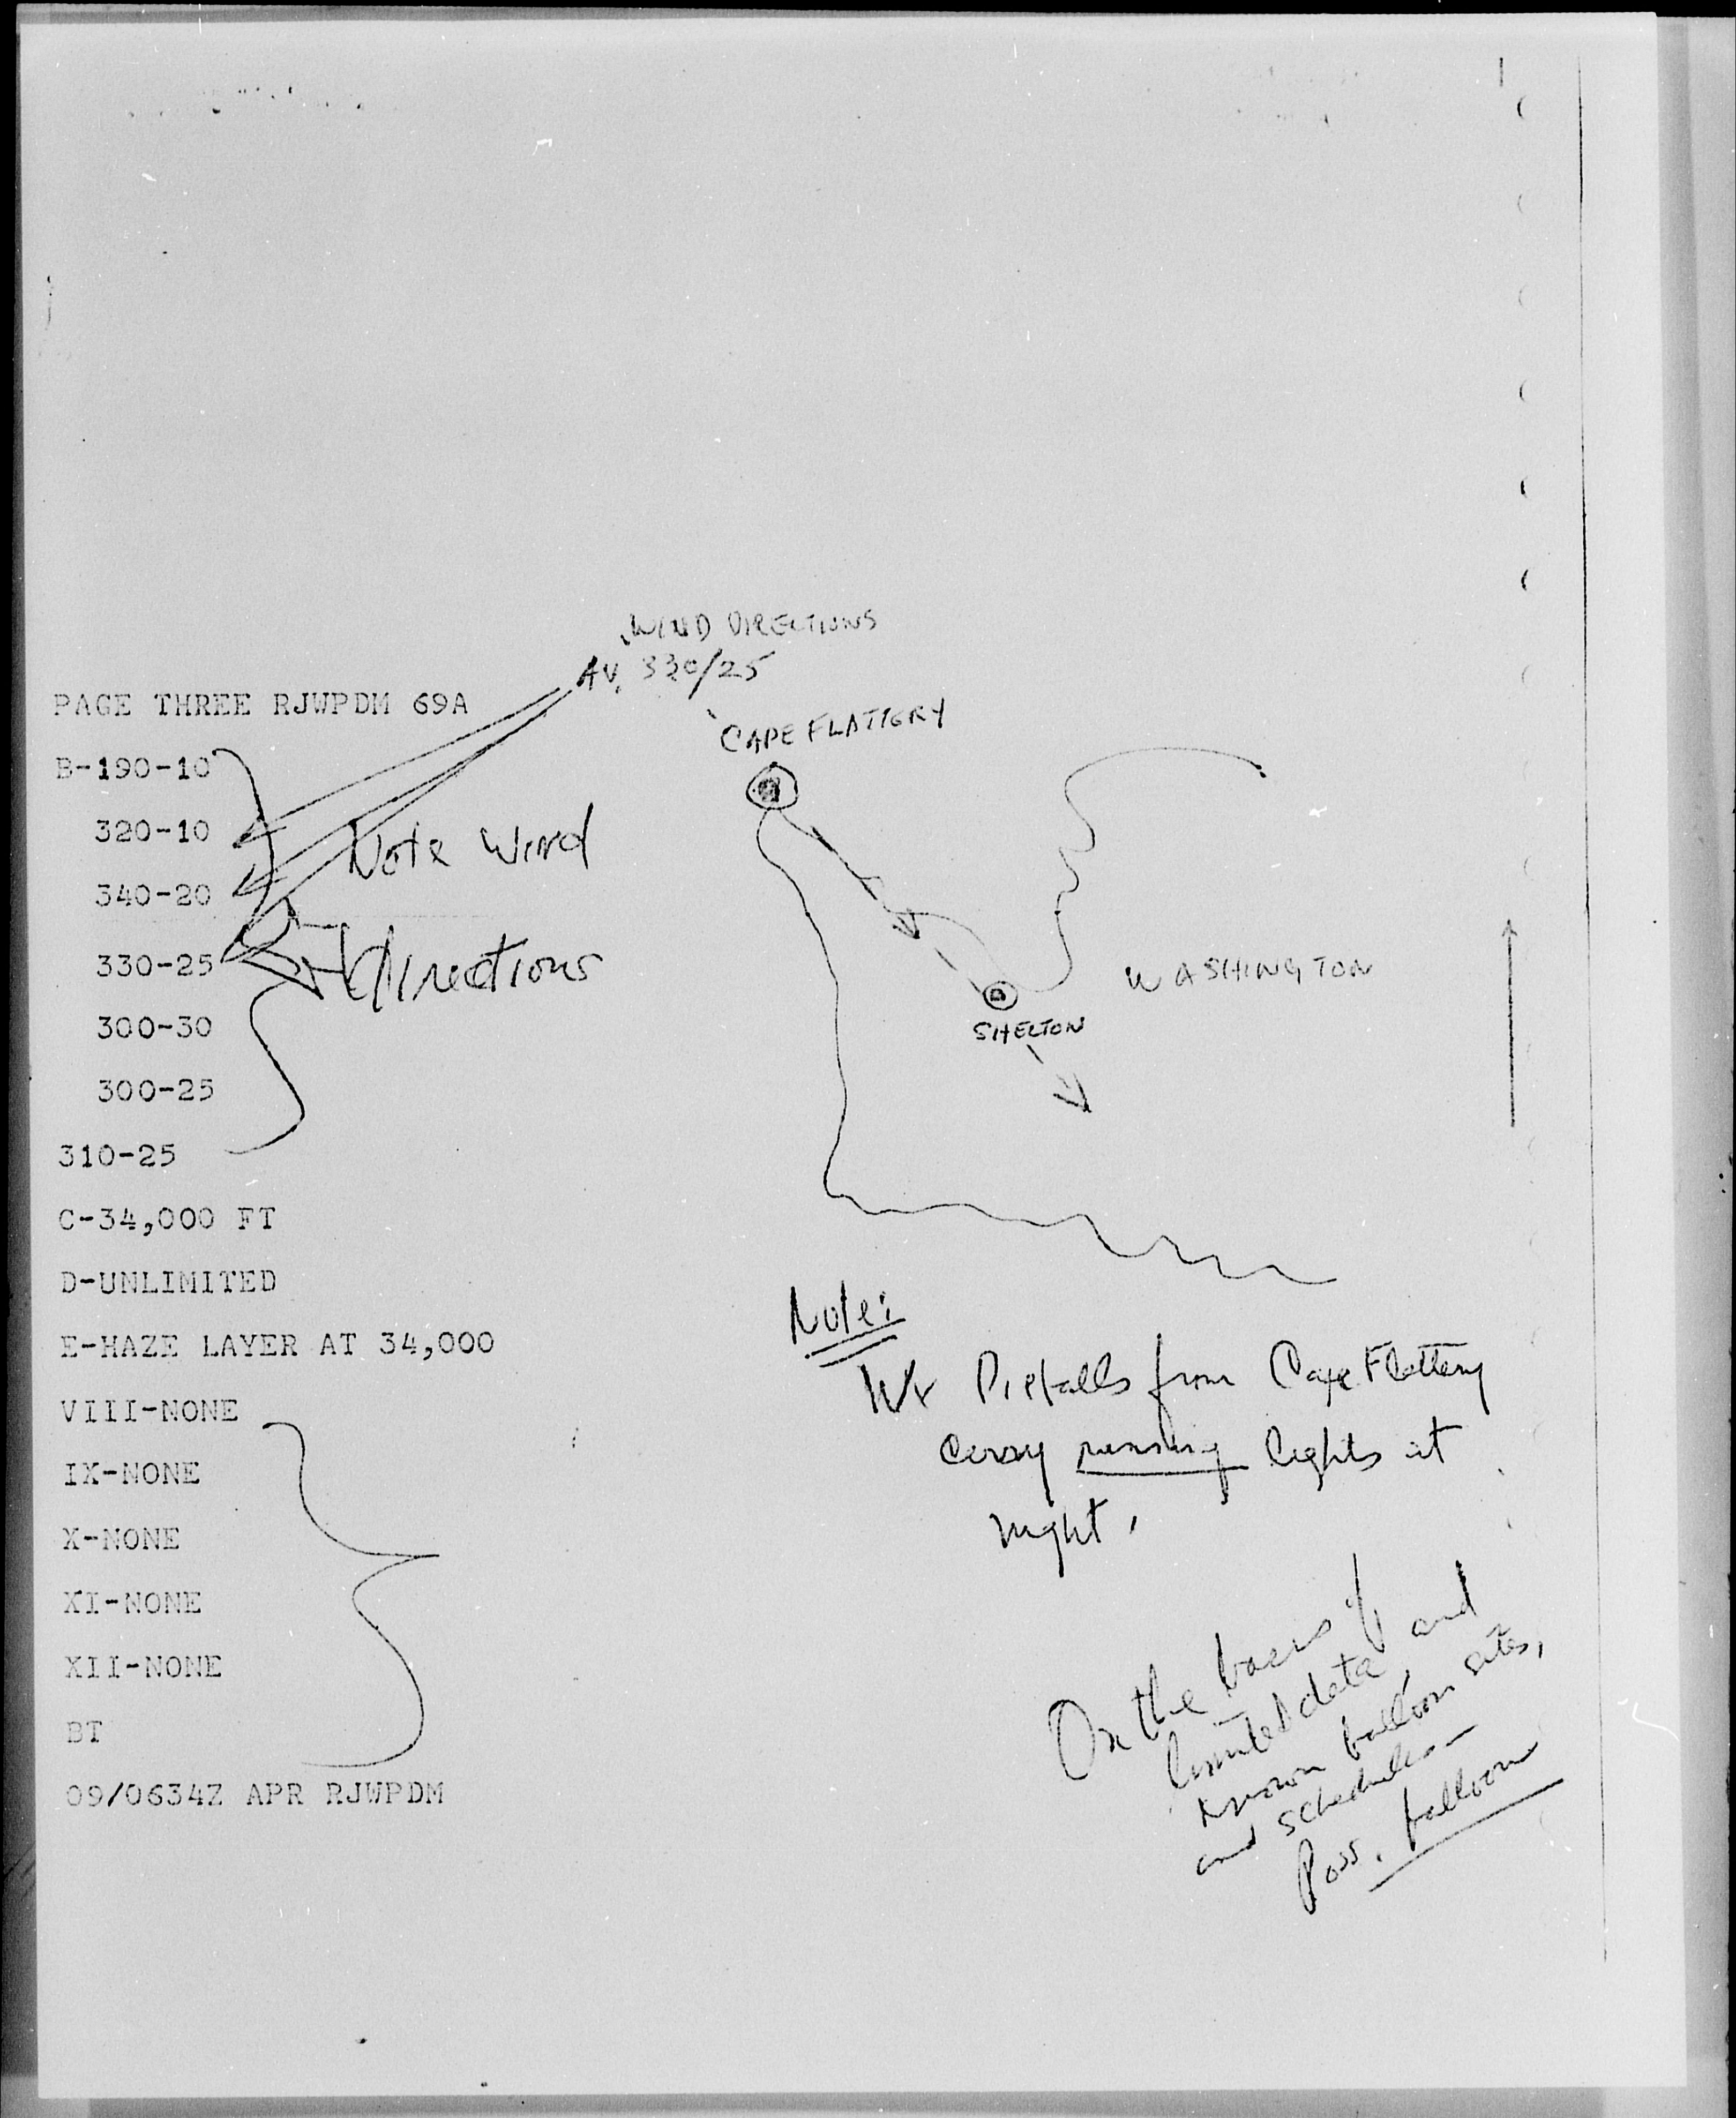 WIND DIRECTIONS
AV. 330/25
PAGE THREE RJWPDM 69A
CAPE FLATTERY
B-190-10
320-10
Note Wind
340-20
330-25
directions
WASHINGTON
SHELTON
300-30
300-25
310-25
C-34,000 FT
D-UNLIMITED
E-HAZE LAYER AT 34,000
VIII-NONE
IX-NONE
X-NONE
XI-NONE
XII-NONE
BT
09/0634Z APR RJWPDM
Note:
Wx from Cape Flattery
carry running lights at
night.
On the basis of
limited data, and
known balloon sites,
and schedules—
Poss. balloon